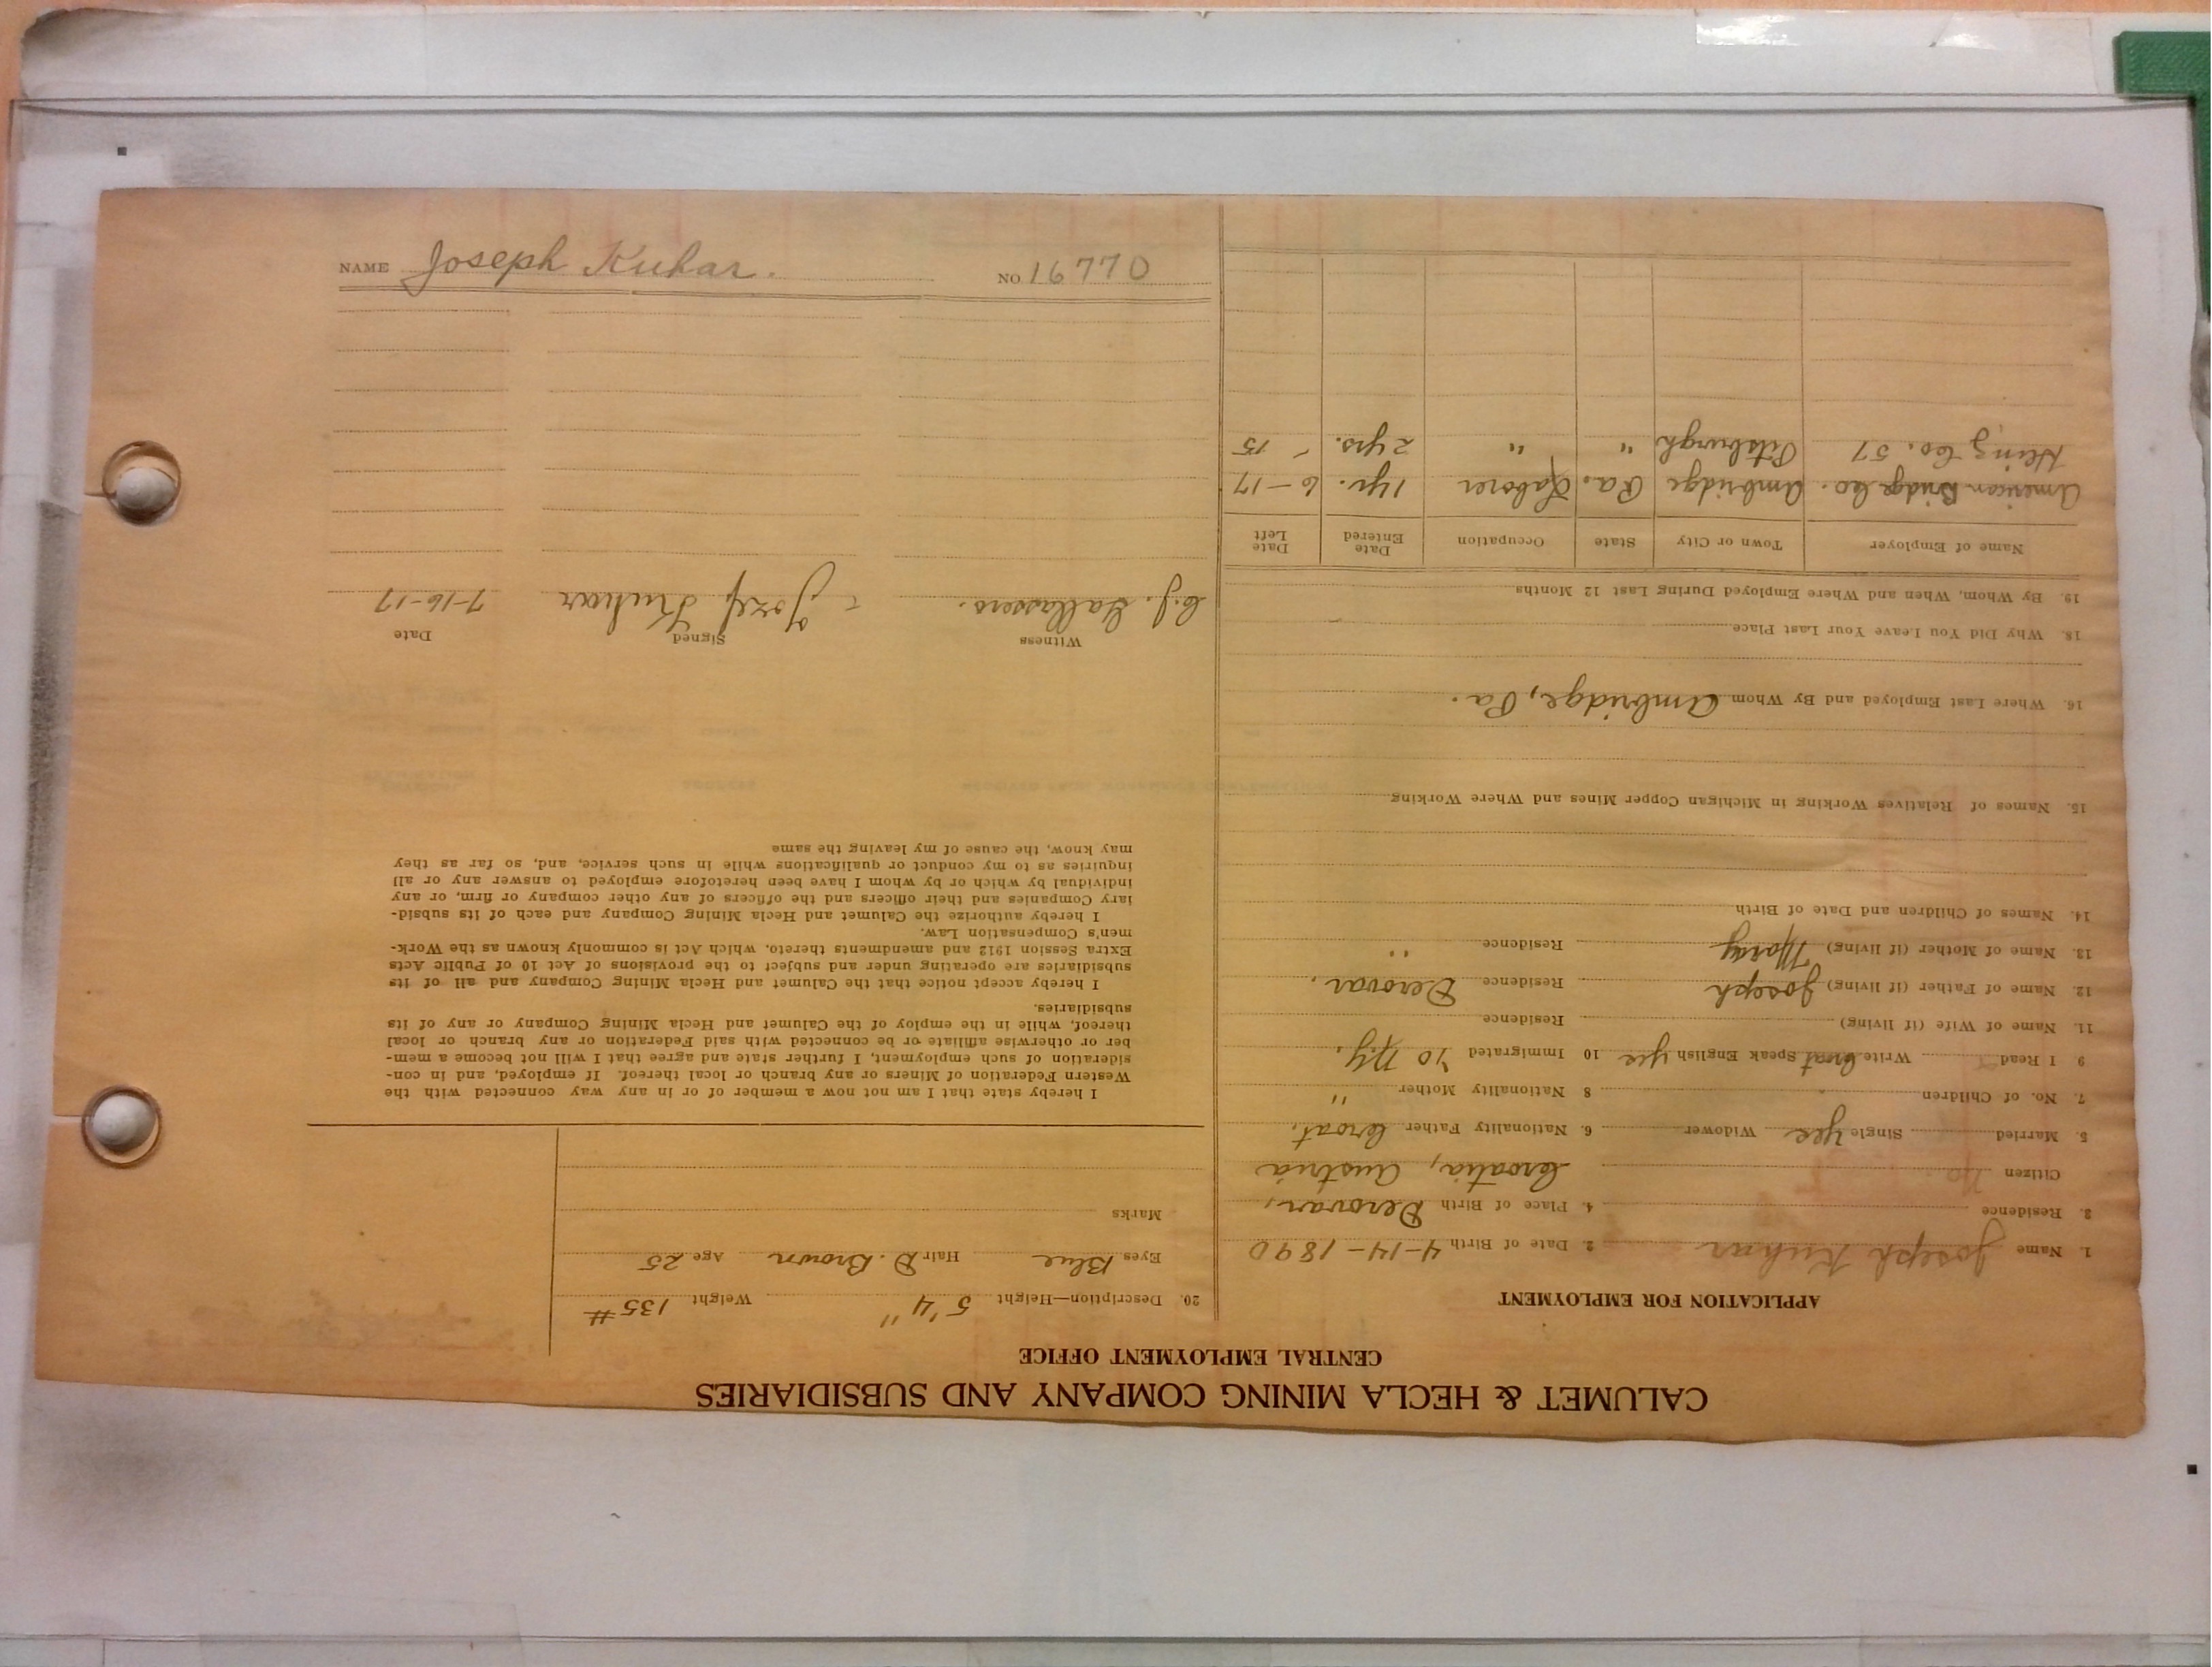 CALUMET & HECLA MINING COMPANY AND SUBSIDIARIES
CENTRAL EMPLOYMENT OFFICE
APPLICATION FOR EMPLOYMENT
1. Name Joseph Kuhar 2. Date of Birth 4-14-1890
3. Residence 4. Place of Birth Derovar,
Citizen No Croatia, Austria
5. Married Single Yes Widower 6. Nationality Father Croat.
7. No. of Children 8 Nationality Mother "
9 I Read Write Croat Speak English Yes 10 Immigrated N.Y.
11. Name of Wife (if living) Residence
12. Name of Father (if living) Joseph Residence Derovar.
13. Name of Mother (if living) Mary Residence "
14. Names of Children and Date of Birth
15. Names of Relatives Working in Michigan Copper Mines and Where Working
16. Where Last Employed and By Whom Ambridge, Pa.
18. Why Did You Leave Your Last Place
19. By Whom, When and Where Employed During Last 12 Months
Name of Employer Town or City State Occupation Date Entered Date Left
American Bridge Co. Ambridge Pa. Laborer 1 yr. 6-17
Heinz Co. 57 Pitsburgh " " 2 yrs. - 15
20. Description—Height 5'4" Weight 135#
Eyes Blue Hair D. Brown Age 25
Marks
I hereby state that I am not now a member of or in any way connected with the
Western Federation of Miners or any branch or local thereof. If employed, and in con-
sideration of such employment, I further state and agree that I will not become a mem-
ber or otherwise affiliate or be connected with said Federation or any branch or local
thereof, while in the employ of the Calumet and Hecla Mining Company or any of its
subsidiaries.
I hereby accept notice that the Calumet and Hecla Mining Company and all of its
subsidiaries are operating under and subject to the provisions of Act 10 of Public Acts
Extra Session 1912 and amendments thereto, which Act is commonly known as the Work-
men's Compensation Law.
I hereby authorize the Calumet and Hecla Mining Company and each of its subsid-
iary Companies and their officers and the officers of any other company or firm, or any
individual by which or by whom I have been heretofore employed to answer any or all
inquiries as to my conduct or qualifications while in such service, and, so far as they
may know, the cause of my leaving the same
Witness Signed Date
C.J. Jozef Kuhar 7-16-17
NAME Joseph Kuhar. NO 16770